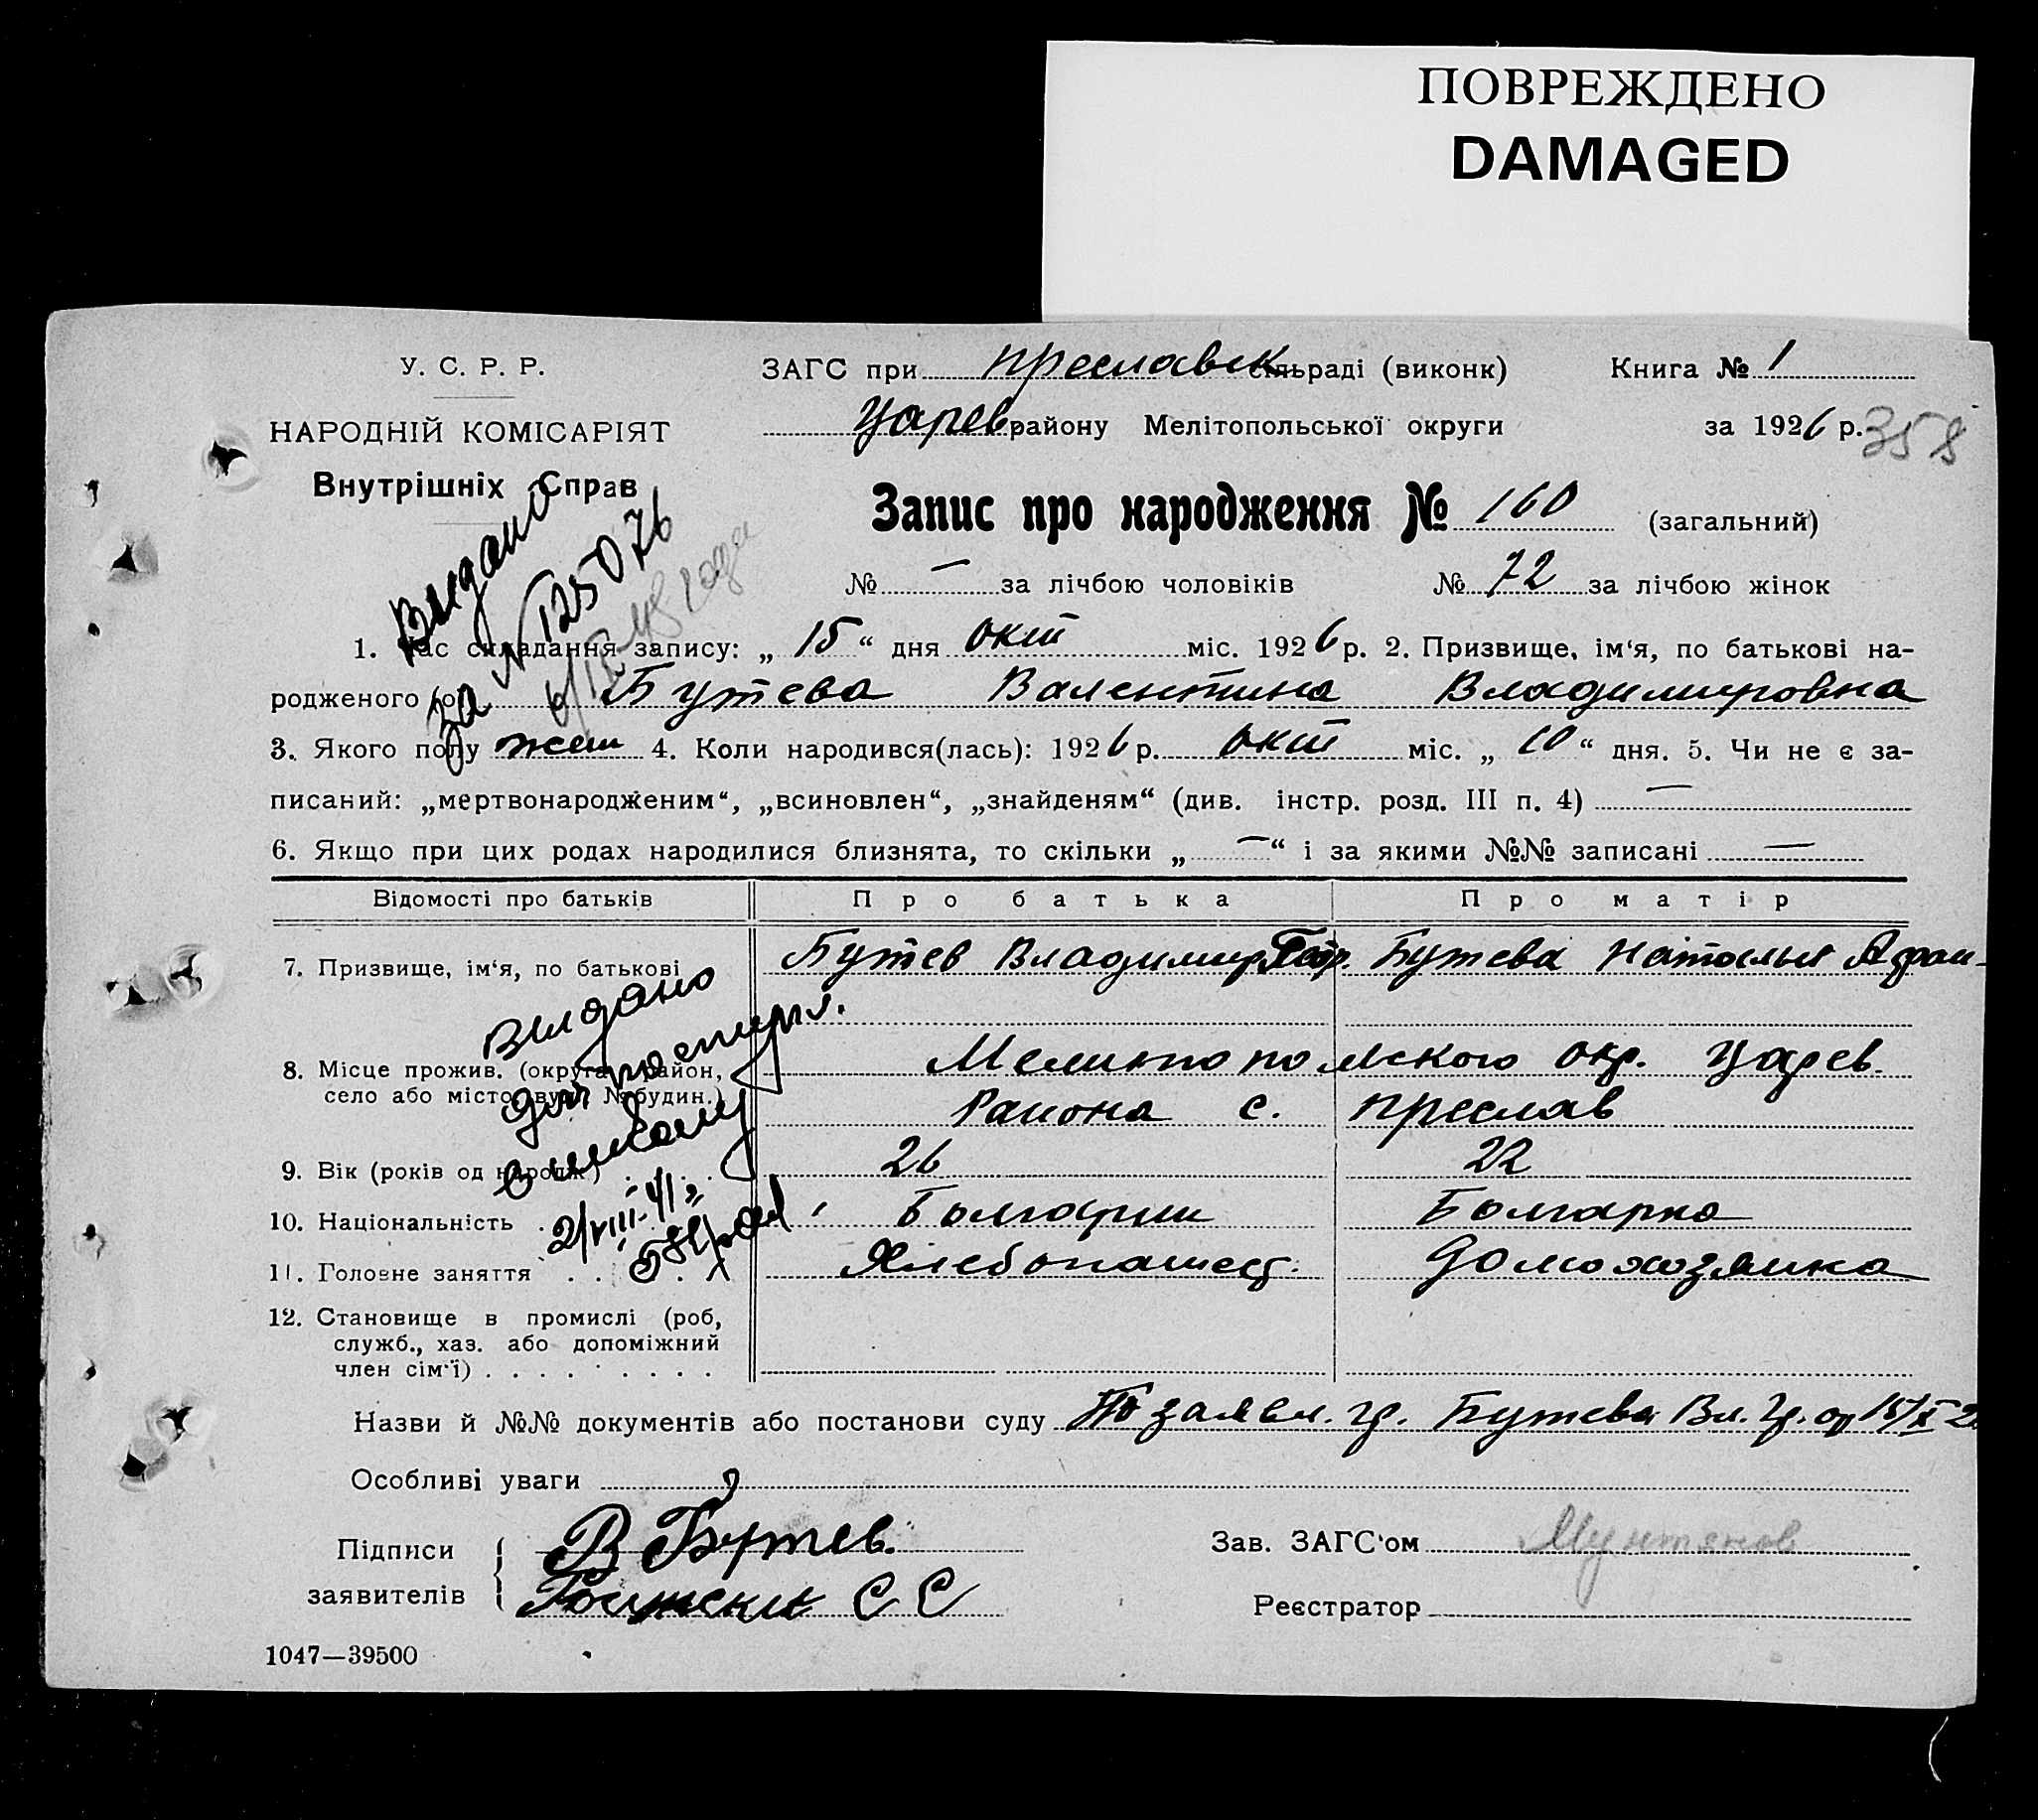 ПОВРЕЖДЕНО
DAMAGED
У. С. Р. Р.
НАРОДНІЙ КОМІСАРІЯТ
Внутрішніх Справ
ЗАГС при Преславск сільраді (виконк)
Царев району Мелітопольської округи
Книга № 1
за 1926 р.
358
Запис про народження № 160 (загальний)
№ — за лічбою чоловіків № 72 за лічбою жінок
Видано
за № 125076
1. Час складання запису: „ 15 “ дня окт міс. 1926 р. 2. Призвище, ім‘я, по батькові на-
родженого (ої) Бутева Валентина Владимировна
3. Якого полу жен 4. Коли народився(лась): 1926 р. окт міс. „ 10 “ дня. 5. Чи не є за-
писаний: „мертвонародженим“, „всиновлен“, „знайденям“ (див. інстр. розд. III п. 4) —
6. Якщо при цих родах народилися близнята, то скільки „ — “ і за якими №№ записані —
Відомості про батьків Про батька Про матір
7. Призвище, ім‘я, по батькові Бутев Владимир Геор. Бутева Наталья Афан-
8. Місце прожив. (округа, район, Мелитопольского окр. Царев.
село або місто, вул. № будин.) Района с. Преслав
9. Вік (років од народж.) 26 22
10. Національність Болгарин Болгарка
11. Головне заняття Хлебопашец. Домохозяйка
12. Становище в промислі (роб,
служб., хаз. або допоміжний
член сім‘ї)
Видано
для
2/VIII-41
Назви й №№ документів або постанови суду По заявл. гр. Бутева Вл. Гр. от 15/X 2
Особливі уваги
Підписи
заявителів
В Бутев.
С С
Зав. ЗАГС‘ом Мунтянов
Реєстратор
1047—39500